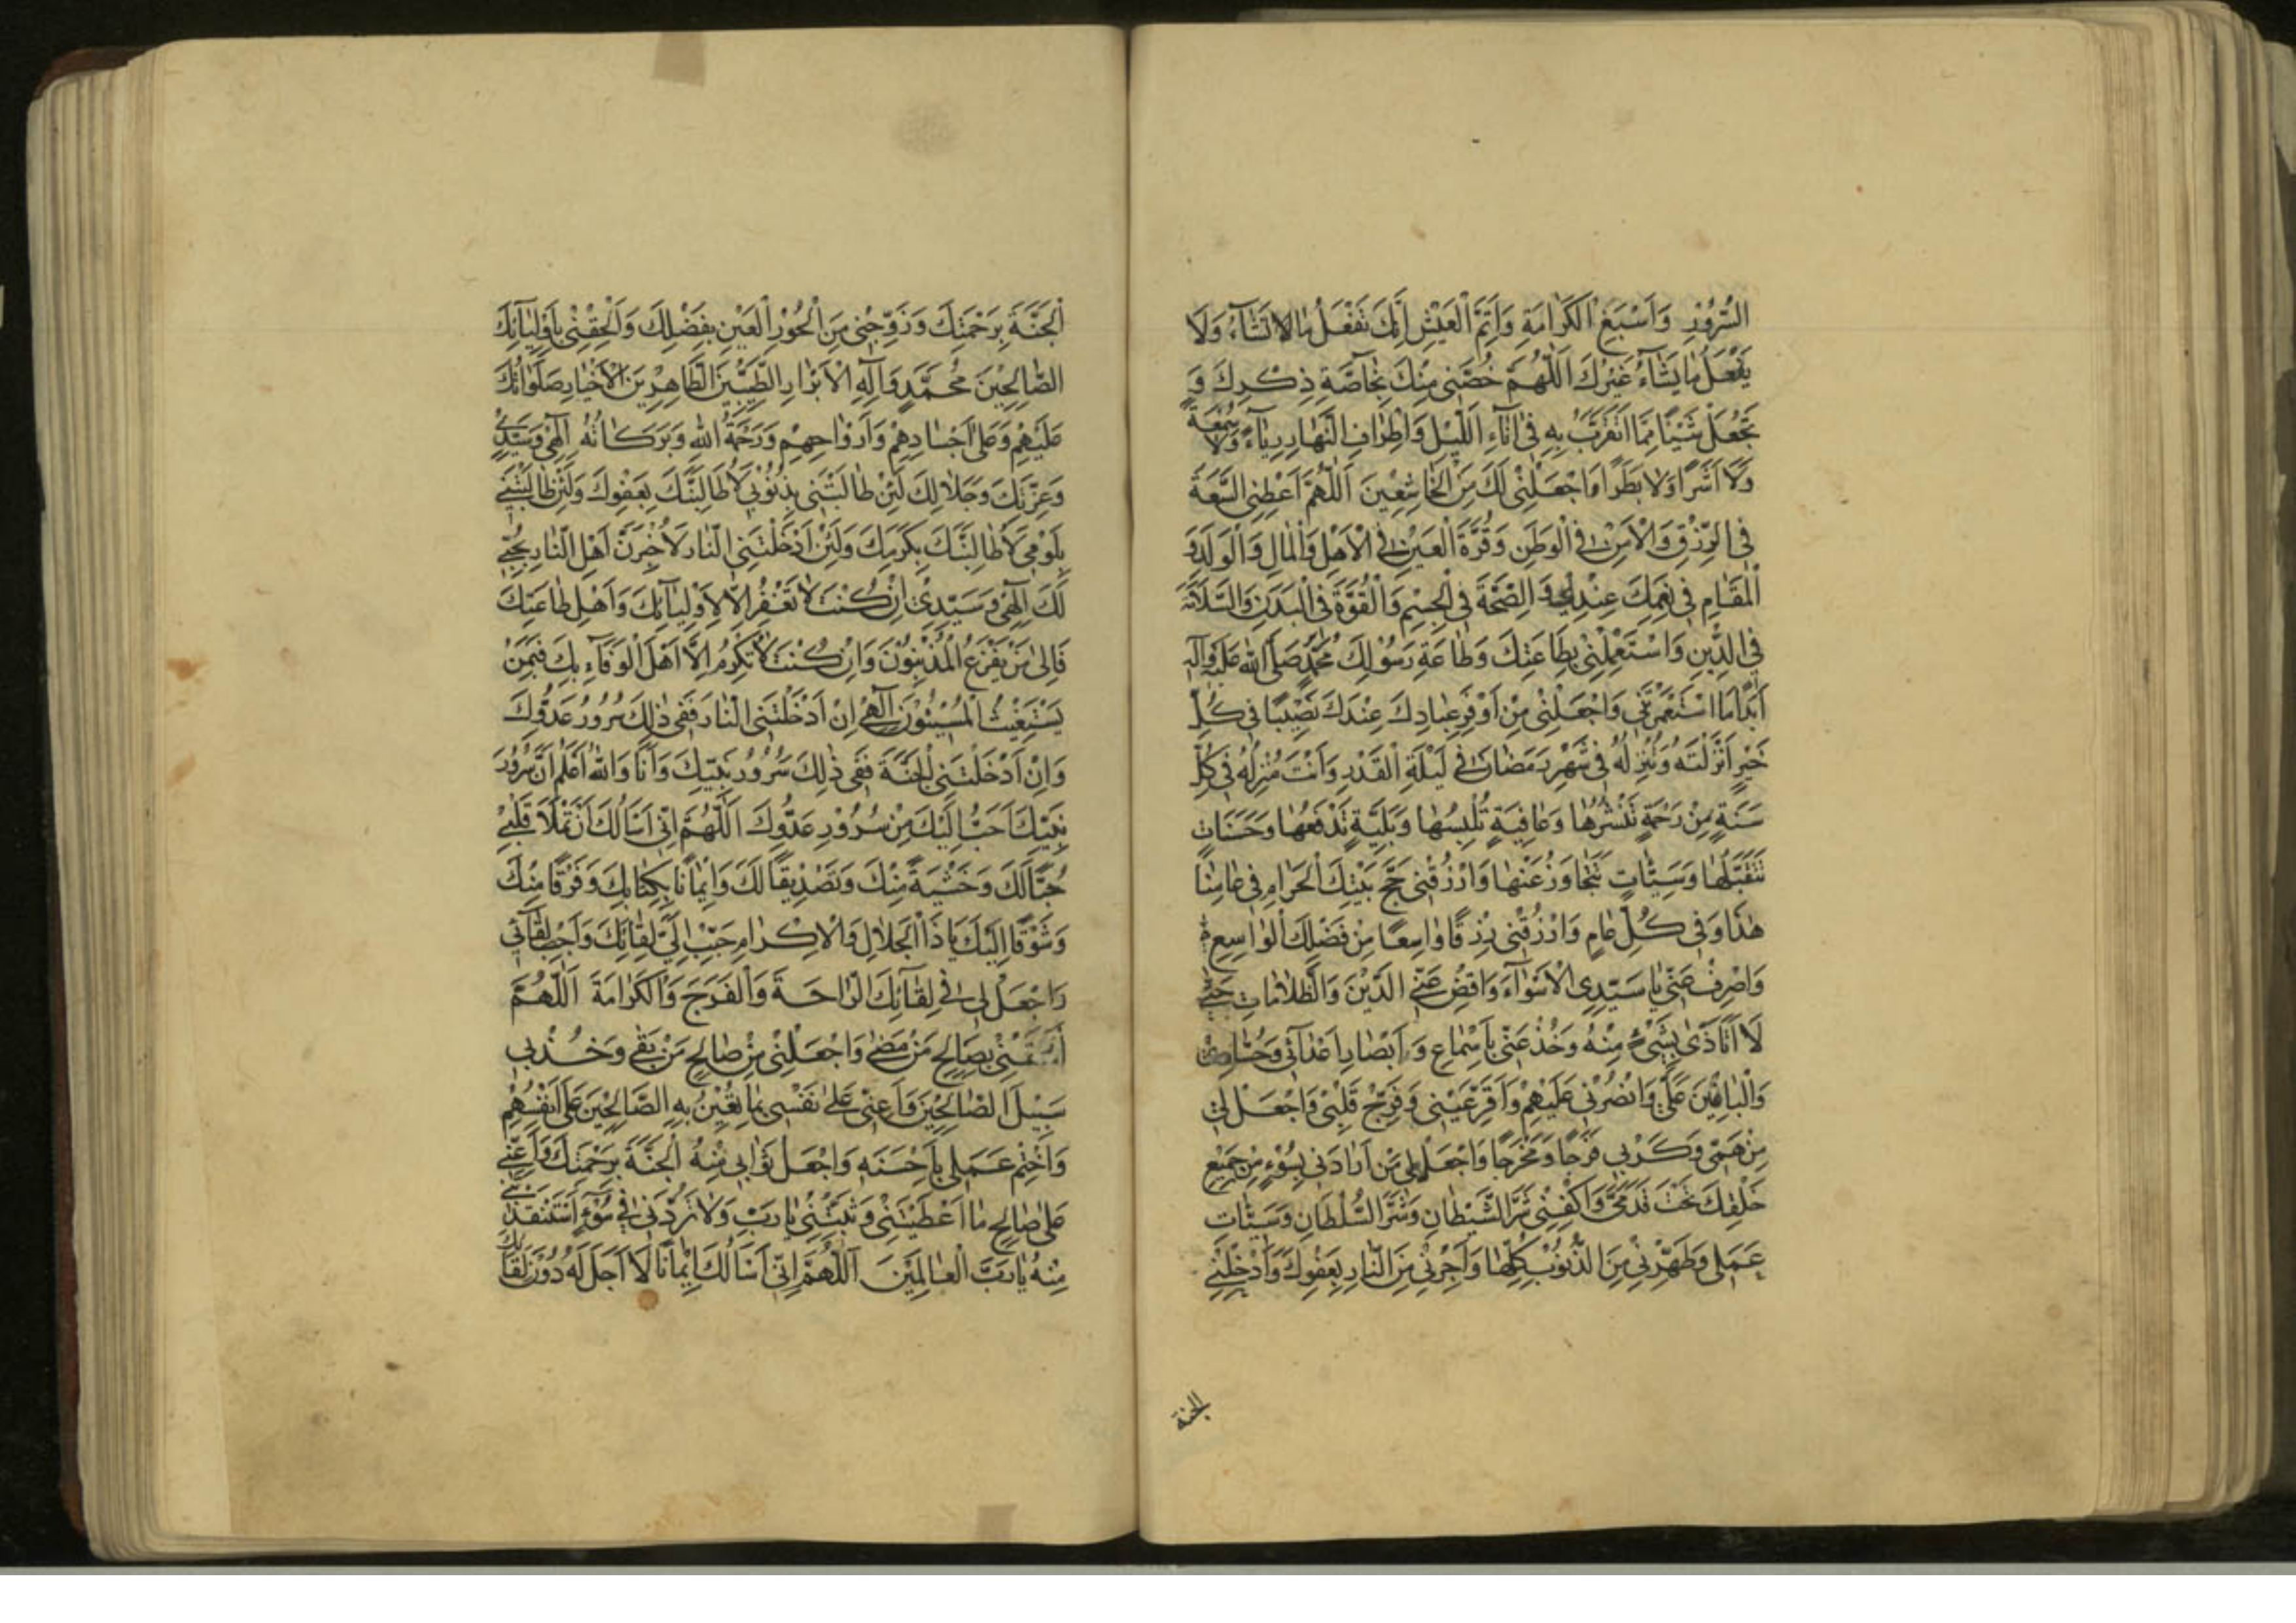 السُّرُورِ وَاَسْبَغِ الْكَرَامَةِ وَاَتَمِّ الْعَيْشِ اِنَّكَ تَفْعَلُ مَا لَا تَشَآءُ وَلَا
يَفْعَلُ مَا يَشَآءُ غَيْرُكَ اَللّٰهُمَّ خُصَّنِى مِنْكَ بِخَآصَّةِ ذِكْرِكَ وَ
تَجْعَلْ شَيْئًا مِمَّا اَتَقَرَّبُ بِهِ فِى اٰنَآءِ اللَّيْلِ وَاَطْرَافِ النَّهَارِ رِيَآءً وَلَا سُمْعَةً
وَلَا اَشَرًا وَلَا بَطَرًا وَاجْعَلْنِى لَكَ مِنَ الْخَاشِعِينَ اَللّٰهُمَّ اَعْطِنِى السَّعَةَ
فِى الرِّزْقِ وَالْاَمْنَ فِى الْوَطَنِ وَقُرَّةَ الْعَيْنِ فِى الْاَهْلِ وَالْمَالِ وَالْوَلَدِ وَ
الْمَقَامِ فِى نِعَمِكَ عِنْدِى وَ الصِّحَّةَ فِى الْجِسْمِ وَالْقُوَّةَ فِى الْبَدَنِ وَالسَّلَامَةَ
فِى الدِّينِ وَاسْتَعْمِلْنِى بِطَاعَتِكَ وَطَاعَةِ رَسُولِكَ مُحَمَّدٍ صَلَّى اللّٰهُ عَلَيْهِ وَآلِهِ
اَبَدًا مَا اسْتَعْمَرْتَنِى وَاجْعَلْنِى مِنْ اَوْفَرِ عِبَادِكَ عِنْدَكَ نَصِيبًا فِى كُلِّ
خَيْرٍ اَنْزَلْتَهُ وَتُنْزِلُهُ فِى شَهْرِ رَمَضَانَ فِى لَيْلَةِ الْقَدْرِ وَاَنْتَ مُنْزِلُهُ فِى كُلِّ
سَنَةٍ مِنْ رَحْمَةٍ تَنْشُرُهَا وَعَافِيَةٍ تُلْبِسُهَا وَبَلِيَّةٍ تَدْفَعُهَا وَحَسَنَاتٍ
تَتَقَبَّلُهَا وَسَيِّئَاتٍ تَتَجَاوَزُ عَنْهَا وَارْزُقْنِى حَجَّ بَيْتِكَ الْحَرَامِ فِى عَامِنَا
هٰذَا وَفِى كُلِّ عَامٍ وَارْزُقْنِى رِزْقًا وَاسِعًا مِنْ فَضْلِكَ الْوَاسِعِ
وَاصْرِفْ عَنِّى يَا سَيِّدِى الْاَسْوَآءَ وَاقْضِ عَنِّى الدَّيْنَ وَالظُّلَامَاتِ حَتّٰى
لَا اَتَاَذّٰى بِشَىْءٍ مِنْهُ وَخُذْ عَنِّى بِاَسْمَاعِ وَ اَبْصَارِ اَعْدَآئِى وَحُسَّادِى
وَالْبَاغِينَ عَلَىَّ وَانْصُرْنِى عَلَيْهِمْ وَاَقِرَّ عَيْنِى وَفَرِّحْ قَلْبِى وَاجْعَلْ لِى
مِنْ هَمِّى وَكَرْبِى فَرَجًا وَمَخْرَجًا وَاجْعَلْ مَنْ اَرَادَنِى بِسُوٓءٍ مِنْ جَمِيعِ
خَلْقِكَ تَحْتَ قَدَمَىَّ وَاكْفِنِى شَرَّ الشَّيْطَانِ وَشَرَّ السُّلْطَانِ وَسَيِّئَاتِ
عَمَلِى وَطَهِّرْنِى مِنَ الذُّنُوبِ كُلِّهَا وَاَجِرْنِى مِنَ النَّارِ بِعَفْوِكَ وَاَدْخِلْنِى
الجنة
اَلْجَنَّةَ بِرَحْمَتِكَ وَزَوِّجْنِى مِنَ الْحُورِ الْعِينِ بِفَضْلِكَ وَاَلْحِقْنِى بِاَوْلِيَآئِكَ
الصَّالِحِينَ مُحَمَّدٍ وَآلِهِ الْاَبْرَارِ الطَّيِّبِينَ الطَّاهِرِينَ الْاَخْيَارِ صَلَوَاتُكَ
عَلَيْهِمْ وَعَلٰى اَجْسَادِهِمْ وَاَرْوَاحِهِمْ وَرَحْمَةُ اللّٰهِ وَبَرَكَاتُهُ اِلٰهِى وَسَيِّدِى
وَعِزَّتِكَ وَجَلَالِكَ لَئِنْ طَالَبْتَنِى بِذُنُوبِى لَاُطَالِبَنَّكَ بِعَفْوِكَ وَلَئِنْ طَالَبْتَنِى
بِلَوْمِى لَاُطَالِبَنَّكَ بِكَرَمِكَ وَلَئِنْ اَدْخَلْتَنِى النَّارَ لَاُخْبِرَنَّ اَهْلَ النَّارِ بِحُبِّى
لَكَ اِلٰهِى وَسَيِّدِى اِنْ كُنْتَ لَا تَغْفِرُ اِلَّا لِاَوْلِيَآئِكَ وَاَهْلِ طَاعَتِكَ
فَاِلٰى مَنْ يَفْزَعُ الْمُذْنِبُونَ وَاِنْ كُنْتَ لَا تُكْرِمُ اِلَّا اَهْلَ الْوَفَآءِ بِكَ فَبِمَنْ
يَسْتَغِيثُ الْمُسِيئُونَ اِلٰهِى اِنْ اَدْخَلْتَنِى النَّارَ فَفِى ذٰلِكَ سُرُورُ عَدُوِّكَ
وَاِنْ اَدْخَلْتَنِى الْجَنَّةَ فَفِى ذٰلِكَ سُرُورُ نَبِيِّكَ وَاَنَا وَاللّٰهِ اَعْلَمُ اَنَّ سُرُورَ
نَبِيِّكَ اَحَبُّ اِلَيْكَ مِنْ سُرُورِ عَدُوِّكَ اَللّٰهُمَّ اِنِّى اَسْاَلُكَ اَنْ تَمْلَاَ قَلْبِى
حُبًّا لَكَ وَخَشْيَةً مِنْكَ وَتَصْدِيقًا لَكَ وَاِيمَانًا بِكِتَابِكَ وَفَرَقًا مِنْكَ
وَشَوْقًا اِلَيْكَ يَا ذَا الْجَلَالِ وَالْاِكْرَامِ حَبِّبْ اِلَىَّ لِقَائَكَ وَاَحْبِبْ لِقَآئِى
وَاجْعَلْ لِى فِى لِقَآئِكَ الرَّاحَةَ وَالْفَرَجَ وَالْكَرَامَةَ اَللّٰهُمَّ
بِصَالِحِ مَنْ مَضٰى وَاجْعَلْنِى مِنْ صَالِحِ مَنْ بَقِىَ وَخُذْ بِى
سَبِيلَ الصَّالِحِينَ وَاَعِنِّى عَلٰى نَفْسِى بِمَا تُعِينُ بِهِ الصَّالِحِينَ عَلٰى اَنْفُسِهِمْ
وَاخْتِمْ عَمَلِى بِاَحْسَنِهِ وَاجْعَلْ ثَوَابِى مِنْهُ الْجَنَّةَ بِرَحْمَتِكَ وَاَعِنِّى
عَلٰى صَالِحِ مَا اَعْطَيْتَنِى وَثَبِّتْنِى يَا رَبِّ وَلَا تَرُدَّنِى فِى سُوٓءٍ اسْتَنْقَذْتَنِى
مِنْهُ يَا رَبَّ الْعَالَمِينَ اَللّٰهُمَّ اِنِّى اَسْاَلُكَ اِيمَانًا لَا اَجَلَ لَهُ دُونَ لِقَائِكَ